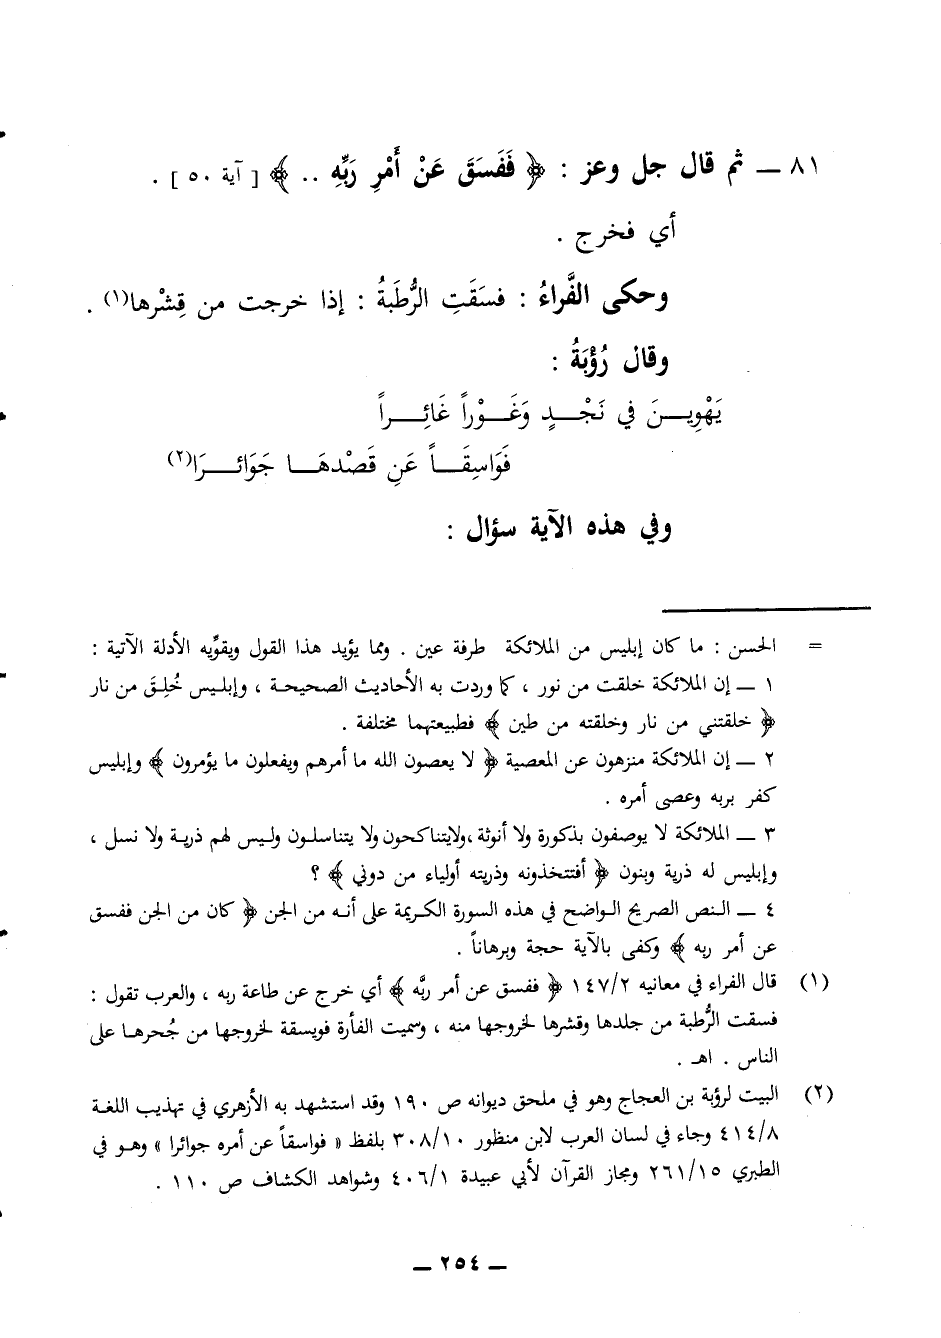 ٨١ ــ ثم قال جل وعز : ﴿ فَفَسَقَ عَنْ أَمْرِ رَبِّهِ .. ﴾ [ آية ٥٠ ] .
أي فخرج .
وحكى الفَّراءُ : فسَقَتِ الرُّطَبةُ : إذا خرجت من قِشْرها(١) .
وقال رُؤْبَةُ :
يَهْوِيــنَ في نَجْــدٍ وَغَــوْراً غَائِــراً
فَوَاسِقَــاً عَنِ قَصْدهَــا جَوَائــرَا(٢)
وفي هذه الآية سؤال :
= الحسن : ما كان إبليس من الملائكة طرفة عين . ومما يؤيد هذا القول ويقوِّيه الأدلة الآتية :
١ ــ إن الملائكة خلقت من نور ، كما وردت به الأحاديث الصحيحة ، وإبليس خُلِقَ من نار
﴿ خلقتني من نار وخلقته من طين ﴾ فطبيعتهما مختلفة .
٢ ــ إن الملائكة منزهون عن المعصية ﴿ لا يعصون الله ما أمرهم ويفعلون ما يؤمرون ﴾ وإبليس
كفر بربه وعصى أمره .
٣ ــ الملائكة لا يوصفون بذكورة ولا أنوثة ،ولايتناكحون ولا يتناسلـون وليس لهم ذرية ولا نسل ،
وإبليس له ذرية وبنون ﴿ أفتتخذونه وذريته أولياء من دوني ﴾ ؟
٤ ــ النص الصريح الواضح في هذه السورة الكريمة على أنـه من الجن ﴿ كان من الجن ففسق
عن أمر ربه ﴾ وكفى بالآية حجة وبرهاناً .
(١) قال الفراء في معانيه ١٤٧/٢ ﴿ ففسق عن أمر ربَّه ﴾ أي خرج عن طاعة ربه ، والعرب تقول :
فسقت الرُّطبة من جلدها وقشرها لخروجها منه ، وسميت الفأرة فويسقة لخروجها من جُحرهـا على
الناس . اهـ .
(٢) البيت لرؤبة بن العجاج وهو في ملحق ديوانه ص ١٩٠ وقد استشهد به الأزهري في تهذيب اللغة
٤١٤/٨ وجاء في لسان العرب لابن منظور ٣٠٨/١٠ بلفظ « فواسقاً عن أمره جوائرا » وهـو في
الطبري ٢٦١/١٥ ومجاز القرآن لأبي عبيدة ٤٠٦/١ وشواهد الكشاف ص ١١٠ .
ــ ٢٥٤ ــ